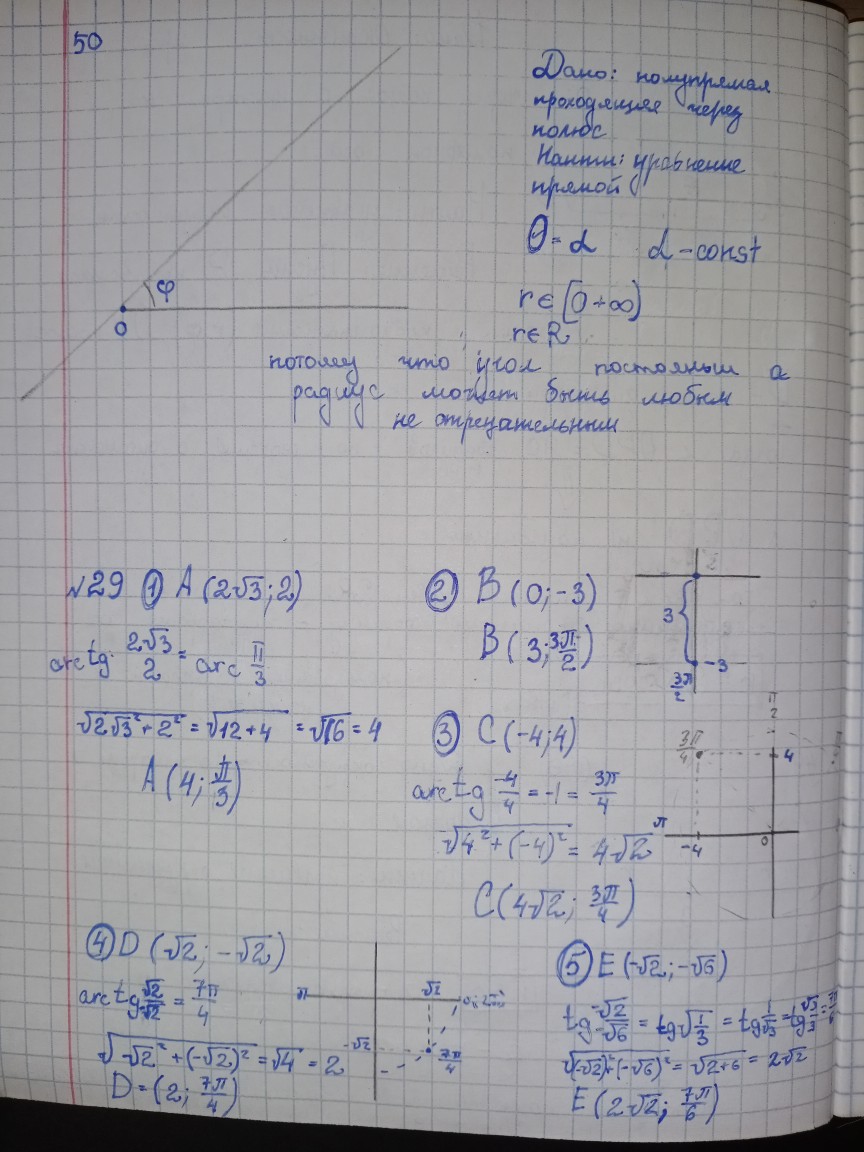 50
Дано: полупрямая
проходящяя через
полюс
Найти: уравнение
прямой
θ = α   α - const
φ
0
r ∈ [0 +∞)
r ∈ R
потому что угол постояный а
радиус может быть любым
не отрецательным
№29 ① A (2√3; 2)
arctg 2√3/2 = arc π/3
√2√3² + 2² = √12+4 = √16 = 4
A (4; π/3)
② B (0; -3)
B (3; 3π/2)
3
-3
3π/2
③ C (-4; 4)
arctg -4/4 = -1 = 3π/4
√4² + (-4)² = 4√2
C (4√2; 3π/4)
π/2
3π/4
4
π
-4
0
④ D (√2; -√2)
arctg √2/-√2 = 7π/4
√√2² + (-√2)² = √4 = 2
D = (2; 7π/4)
π
√2
0; 2π
-√2
7π/4
⑤ E (-√2; -√6)
tg -√2/-√6 = tg √1/3 = tg 1/√3 = tg √3/3 = 7π/6
√(-√2)² + (-√6)² = √2+6 = 2√2
E (2√2; 7π/6)